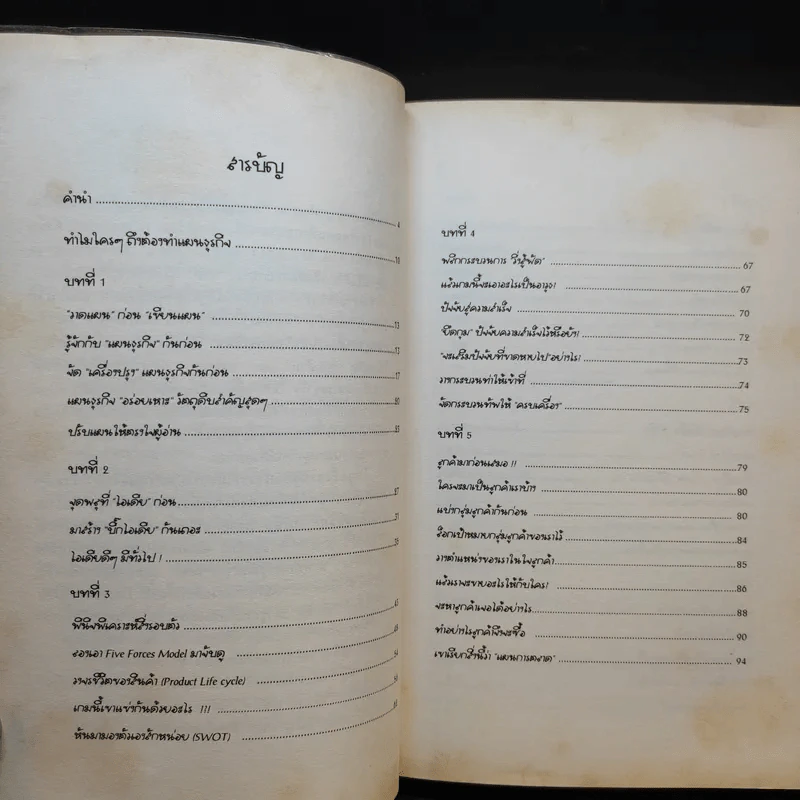 สารบัญ
คำนำ 4
ทำไมใครๆ ถึงต้องทำแผนธุรกิจ 10
บทที่ 1
"วาดแผน" ก่อน "เขียนแผน" 13
รู้จักกับ "แผนธุรกิจ" กันก่อน
จัด "เครื่องปรุง" แผนธุรกิจกันก่อน 17
แผนธุรกิจ "อร่อยเหาะ" วัตถุดิบสำคัญสุดๆ
ปรับแผนให้ตรงใจผู้อ่าน
บทที่ 2
จุดพลุที่ "ไอเดีย" ก่อน
มาสร้าง "บิ๊กไอเดีย" กันเถอะ
ไอเดียดีๆ มีทั่วไป !
บทที่ 3
พินิจพิเคราะห์สิ่งรอบตัว
ลองเอา Five Forces Model มาจับดู
วงจรชีวิตของสินค้า (Product Life cycle)
เกมนี้เขาแข่งกันด้วยอะไร !!!
หันมามองตัวเองสักหน่อย (SWOT)
บทที่ 4
พลิกกระบวนการ วิ่งสู้ฟัด" 67
แล้วเกมนี้จะเอาอะไรเป็นอาวุธ! 67
ปัจจัยสู่ความสำเร็จ 70
"ยึดกุม" ปัจจัยความสำเร็จไว้หรือยัง! 72
"จะเสริมปัจจัยที่ขาดหายไป"อย่างไร! 73
วางกระบวนท่าให้เข้าที่ 74
จัดกระบวนทัพให้ "ครบเครื่อง" 75
บทที่ 5
ลูกค้ามาก่อนเสมอ !! 79
ใครจะมาเป็นลูกค้าเราบ้าง 80
แบ่งกลุ่มลูกค้ากันก่อน 80
ล็อกเป้าหมายกลุ่มลูกค้าของเราไว้ 84
วางตำแหน่งของเราในใจลูกค้า 85
แล้วเราจะขายอะไรให้กับใคร! 86
จะหาลูกค้าเจอได้อย่างไร 88
ทำอย่างไรลูกค้าจึงจะซื้อ 90
เขาเรียกสิ่งนี้ว่า "แผนการตลาด" 94